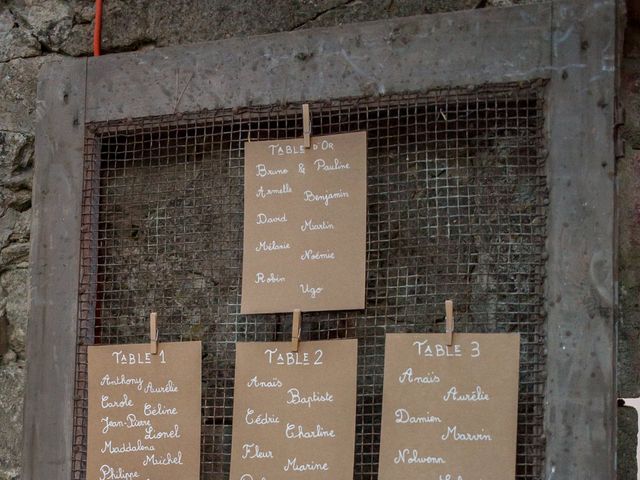 TABLE D'OR
Bruno & Pauline
Armelle
Benjamin
David
Martin
Mélanie
Noémie
Robin
Ugo
TABLE 1
Anthony
Aurélie
Carole
Céline
Jean-Pierre
Lionel
Maddalena
Michel
Philippe
TABLE 2
Anaïs
Baptiste
Cédric
Charline
Fleur
Marine
TABLE 3
Anaïs
Aurélie
Damien
Marvin
Nolwenn